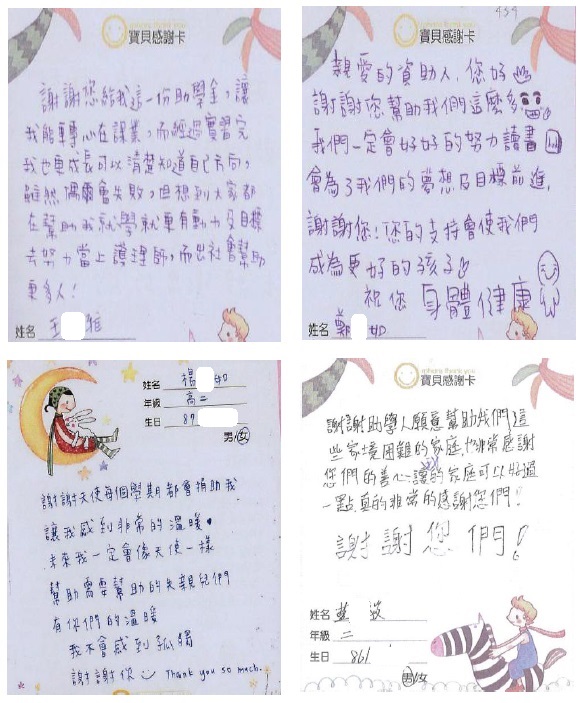 寶貝感謝卡
謝謝您給我這一份助學金,讓
我能專心在課業,而經過實習完
我也更成長可以清楚知道自己方向,
雖然偶爾會失敗,但想到大家都
在幫助我就學就更有動力及目標
去努力當上護理師,而出社會幫助
更多人!
姓名 王 雅
434
寶貝感謝卡
親愛的資助人,您好
謝謝您幫助我們這麼多
我們一定會好好的努力讀書
會為了我們的夢想及目標前進,
謝謝您!您的支持會使我們
成為更好的孩子
祝您身體健康
姓名 鄭 如
姓名 楊 如
年級 高二
生日 87
男/女
謝謝天使每個學期都會捐助我
讓我感到非常的溫暖
未來我一定會像天使一樣
幫助需要幫助的失親兒們
有你們的溫暖
我不會感到孤獨
謝謝你 Thank you so much.
寶貝感謝卡
謝謝助學人願意幫助我們這
些家境困難的家庭,也非常感謝
您們的善心讓我的家庭可以好過
一點真的非常的感謝您們!
謝謝您們!
姓名 藍
年級 二
生日 861
男/女